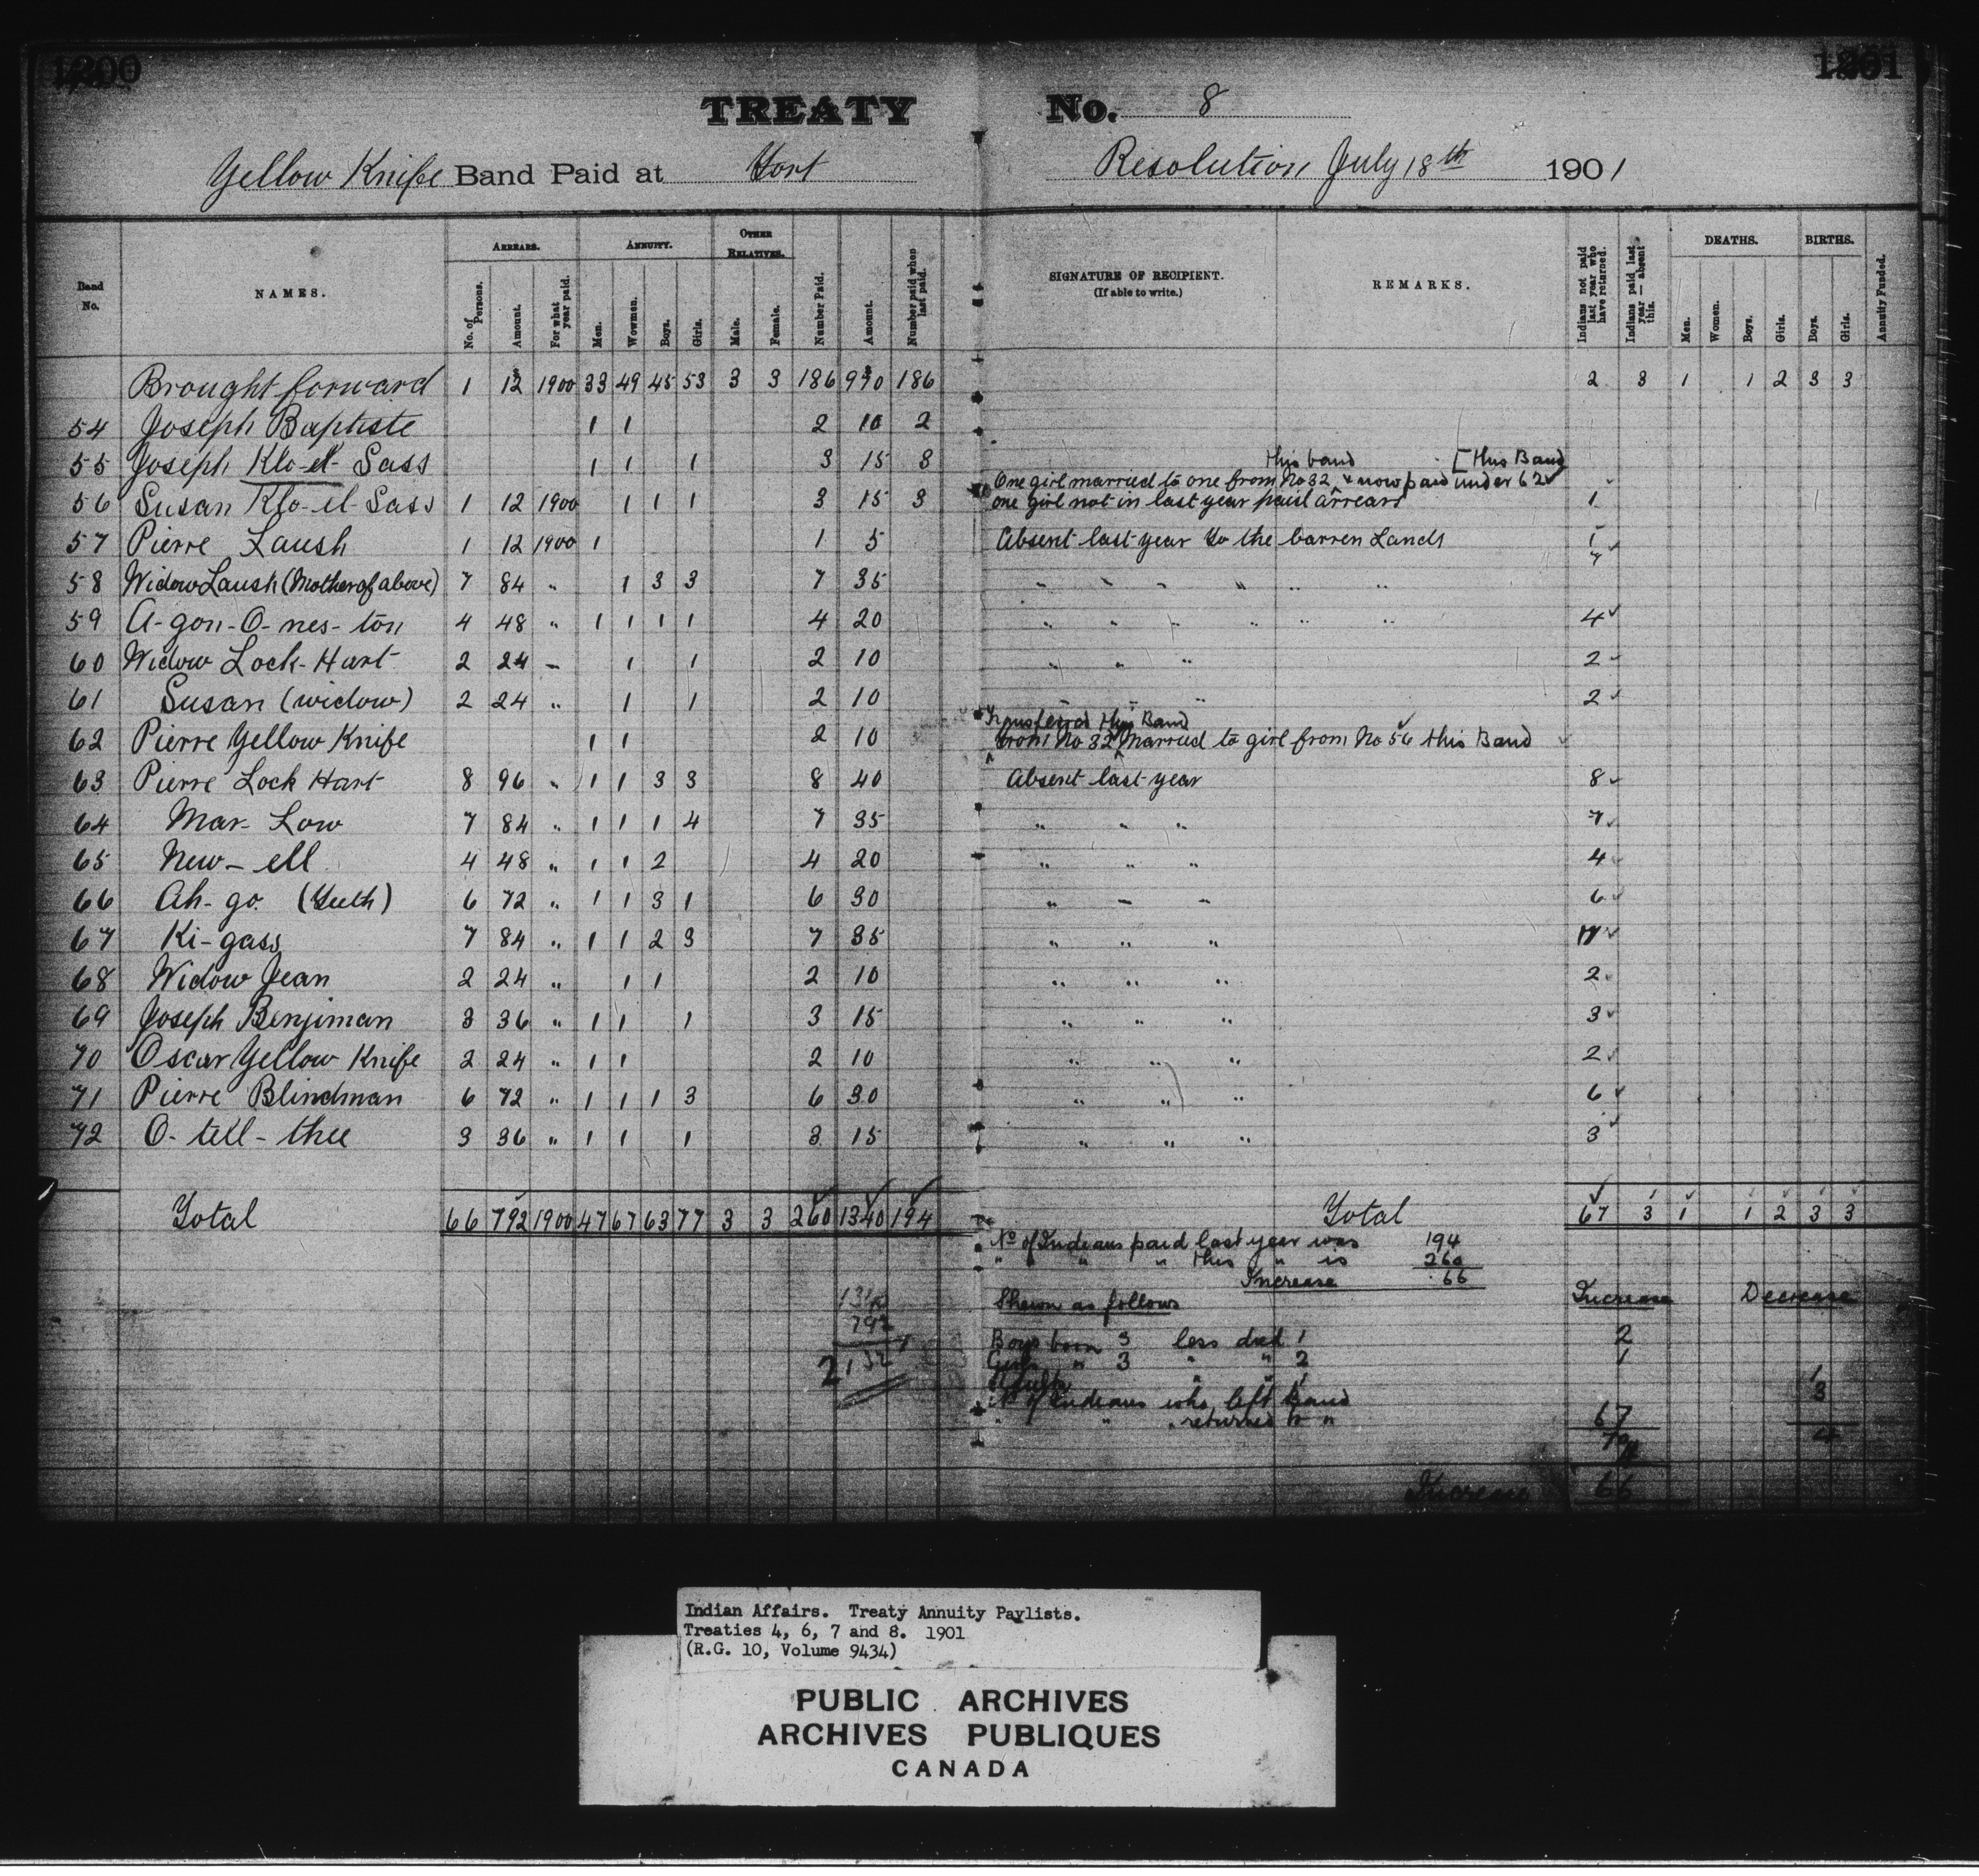 1200 1201
TREATY No. 8
Yellow Knife Band Paid at Fort Resolution July 18th 1901
Band No. NAMES. ARREARS. ANNUITY. OTHER RELATIVES. Number Paid. Amount. Number paid when last paid. SIGNATURE OF RECIPIENT. (If able to write.) REMARKS. Indians not paid last year who have returned. Indians paid last year — absent this. DEATHS. BIRTHS. Annuity Funded.
No. of Persons. Amount. For what year paid. Men. Wowmen. Boys. Girls. Male. Female. Men. Women. Boys. Girls. Boys. Girls.
Brought forward 1 12 1900 33 49 45 53 3 3 186 990 186 2 3 1 1 2 3 3
54 Joseph Baptiste 1 1 2 10 2
55 Joseph Klo-el-Sass 1 1 1 3 15 3
this band [this Band
One girl married to one from No 32 & now paid under 62
56 Susan Klo-el-Sass 1 12 1900 1 1 1 3 15 3 one girl not in last year paid arrears 1
57 Pierre Laush 1 12 1900 1 1 5 Absent last year to the barren Lands 1
58 Widow Laush (Mother of above) 7 84 " 1 3 3 7 35 " " " " " " 7
59 A-gon-O-nes-ton 4 48 " 1 1 1 1 4 20 " " " " " " 4
60 Widow Lock-Hart 2 24 " 1 1 2 10 " " " 2
61 Susan (widow) 2 24 " 1 1 2 10 " " " 2
Transferred this Band
62 Pierre Yellow Knife 1 1 2 10 from No 32 Married to girl from No 56 this Band
63 Pierre Lock Hart 8 96 " 1 1 3 3 8 40 Absent last year 8
64 Mar-Low 7 84 " 1 1 1 4 7 35 " " " 7
65 New-ell 4 48 " 1 1 2 4 20 " " " 4
66 Ah-go. 6 72 " 1 1 3 1 6 30 " " " 6
67 Ki-gass 7 84 " 1 1 2 3 7 35 " " " 7
68 Widow Jean 2 24 " 1 1 2 10 " " " 2
69 Joseph Benjiman 3 36 " 1 1 1 3 15 " " " 3
70 Oscar Yellow Knife 2 24 " 1 1 2 10 " " " 2
71 Pierre Blindman 6 72 " 1 1 1 3 6 30 " " " 6
72 O-tell-thee 3 36 " 1 1 1 3 15 " " " 3
Total 66 792 1900 47 67 63 77 3 3 260 1340 194 Total 67 3 1 1 2 3 3
No of Indians paid last year was 194
" " " " this " is 260
Increase 66
Shewn as follows Increase Decrease
Boys born 3 less died 1 2
Girls " 3 " " 2 1
Adults " " 1 1
No of Indians who left Band 3
" " returned to " 67
70 4
Increase 66
792
2132
Indian Affairs. Treaty Annuity Paylists.
Treaties 4, 6, 7 and 8. 1901
(R.G. 10, Volume 9434)
PUBLIC ARCHIVES
ARCHIVES PUBLIQUES
CANADA